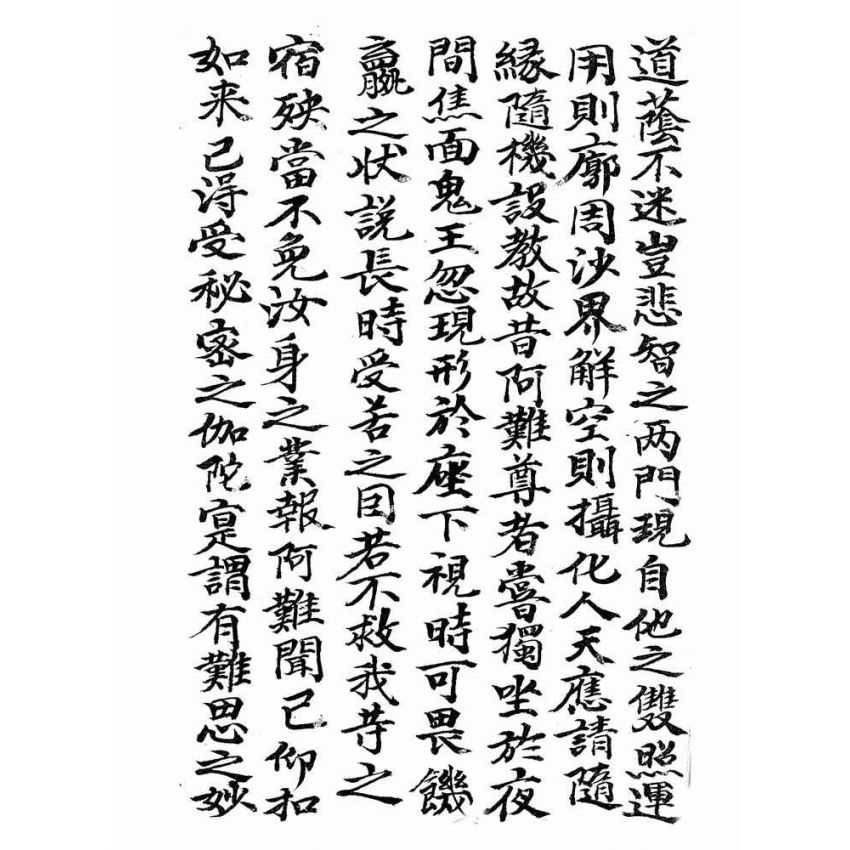 道蔭不迷豈悲智之两門現自他之雙照運
用則廓周沙界解空則攝化人天應請隨
緣隨機設教故昔阿難尊者嘗獨坐於夜
間焦面鬼王忽現形於座下視時可畏饑
羸之状説長時受苦之因若不救我等之
宿殃當不免汝身之業報阿難聞已仰扣
如来已得受秘密之伽陀寔謂有難思之妙